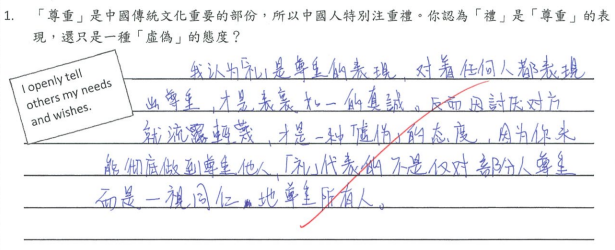 1. 「尊重」是中國傳統文化重要的部份，所以中國人特別注重禮。你認為「禮」是「尊重」的表
現，還只是一種「虛偽」的態度？
I openly tell
others my needs
and wishes.
我认为「礼」是尊重的表現，对着任何人都表現
出尊重，才是表裏如一的真誠。反而因討厌对方
就流露輕蔑，才是一种「虛伪」的态度，因为你未
能彻底做到尊重他人，「礼」代表的不是仅对部份人尊重
而是一視同仁地尊重所有人。